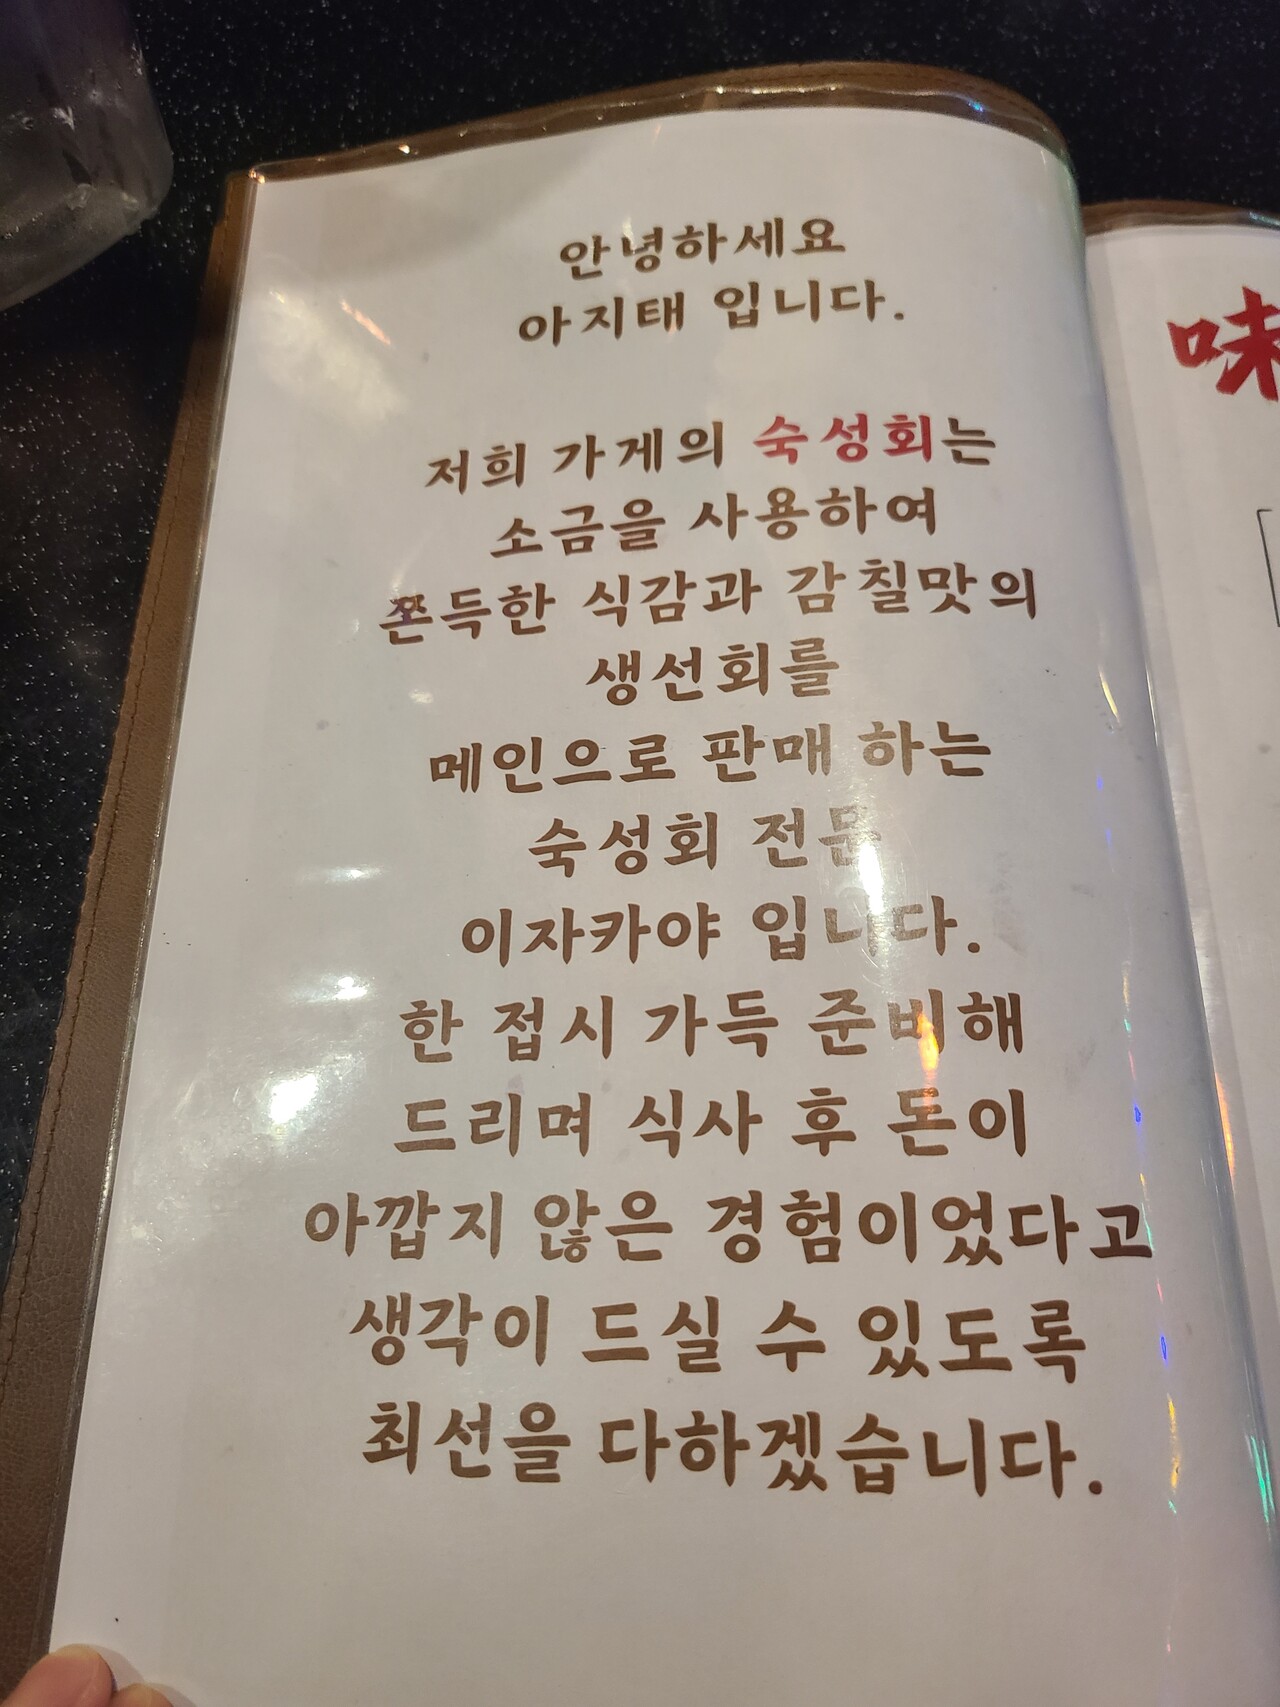 안녕하세요
아지태 입니다.
저희 가게의 숙성회는
소금을 사용하여
쫀득한 식감과 감칠맛의
생선회를
메인으로 판매 하는
숙성회 전문
이자카야 입니다.
한 접시 가득 준비해
드리며 식사 후 돈이
아깝지 않은 경험이었다고
생각이 드실 수 있도록
최선을 다하겠습니다.
味